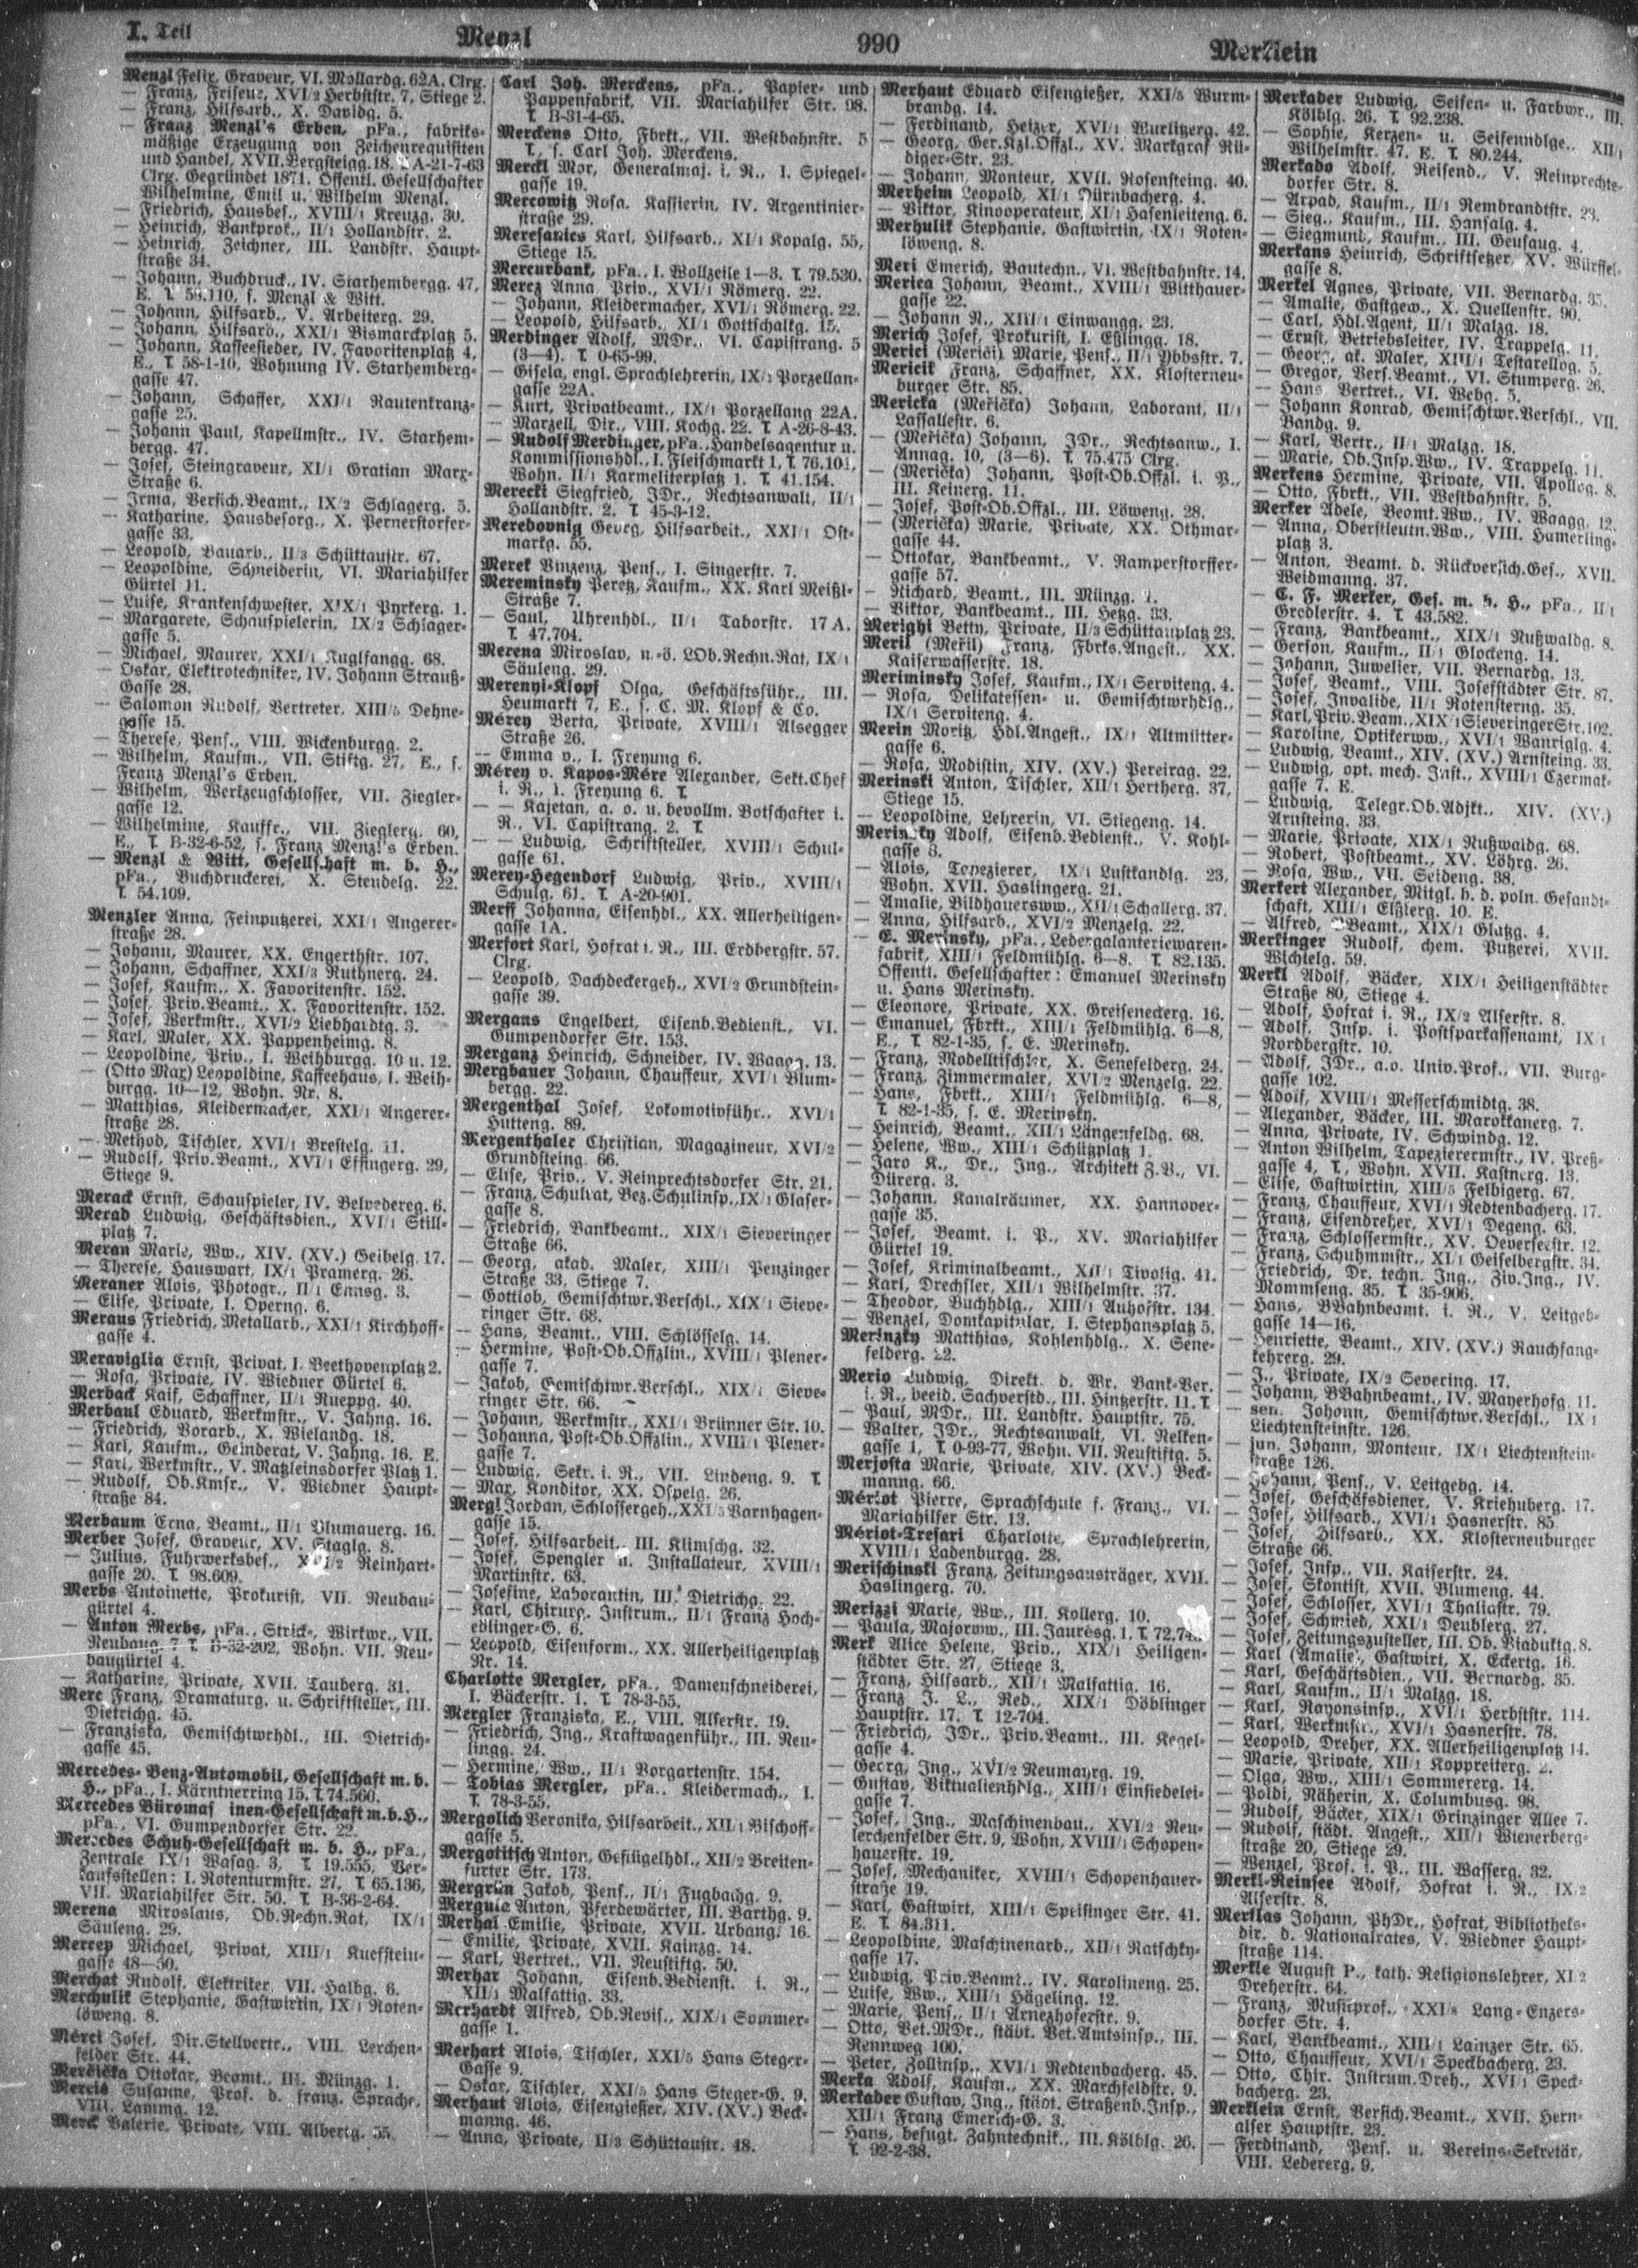 I. Teil
Menzl
990
Merklein
Menzl Felix, Graveur, VI. Mollardg. 62A. Clrg.
— Franz, Friseur, XVI/2 Herbststr. 7, Stiege 2.
— Franz, Hilfsarb., X. Davidg. 5.
— Franz Menzl's Erben, pFa., fabriks-
mäßige Erzeugung von Zeichenrequisiten
und Handel, XVII. Bergsteigg. 18. A-21-7-63
Clrg. Gegründet 1871. Öffentl. Gesellschafter
Wilhelmine, Emil u. Wilhelm Menzl.
— Friedrich, Hausbes., XVIII/1 Kreuzg. 30.
— Heinrich, Bankprok., II/1 Hollandstr. 2.
— Heinrich, Zeichner, III. Landstr. Haupt-
straße 34.
— Johann, Buchdruck., IV. Starhembergg. 47,
E. T. 58.110, s. Menzl & Witt.
— Johann, Hilfsarb., V. Arbeiterg. 29.
— Johann, Hilfsarb., XXI/1 Bismarckplatz 5.
— Johann, Kaffeesieder, IV. Favoritenplatz 4,
E., T. 58-1-10, Wohnung IV. Starhemberg-
gasse 47.
— Johann, Schaffer, XXI/1 Rautenkranz-
gasse 25.
— Johann Paul, Kapellmstr., IV. Starhem-
bergg. 47.
— Josef, Steingraveur, XI/1 Gratian Marx-
Straße 6.
— Irma, Versich.Beamt., IX/2 Schlagerg. 5.
— Katharine, Hausbesorg., X. Pernerstorfer-
gasse 33.
— Leopold, Bauarb., II/3 Schüttaustr. 67.
— Leopoldine, Schneiderin, VI. Mariahilfer
Gürtel 11.
— Luise, Krankenschwester, XIX/1 Pyrkerg. 1.
— Margarete, Schauspielerin, IX/2 Schlager-
gasse 5.
— Michael, Maurer, XXI/1 Kuglfangg. 68.
— Oskar, Elektrotechniker, IV. Johann Strauß-
Gasse 28.
— Salomon Rudolf, Vertreter, XIII/5 Dehne-
gasse 15.
— Therese, Pens., VIII. Wickenburgg. 2.
— Wilhelm, Kaufm., VII. Stiftg. 27, E., s.
Franz Menzl's Erben.
— Wilhelm, Werkzeugschlosser, VII. Ziegler-
gasse 12.
— Wilhelmine, Kauffr., VII. Zieglerg. 60,
E., T. B-32-6-52, s. Franz Menzl's Erben.
— Menzl & Witt, Gesellschaft m. b. H.,
pFa., Buchdruckerei, X. Stendelg. 22.
T. 54.109.
Menzler Anna, Feinputzerei, XXI/1 Angerer-
straße 28.
— Johann, Maurer, XX. Engerthstr. 107.
— Johann, Schaffner, XXI/3 Ruthnerg. 24.
— Josef, Kaufm., X. Favoritenstr. 152.
— Josef, Priv.Beamt., X. Favoritenstr. 152.
— Josef, Werkmstr., XVI/2 Liebhardtg. 3.
— Karl, Maler, XX. Pappenheimg. 8.
— Leopoldine, Priv., I. Weihburgg. 10 u. 12.
— (Otto Max) Leopoldine, Kaffeehaus, I. Weih-
burgg. 10—12, Wohn. Nr. 8.
— Matthias, Kleidermacher, XXI/1 Angerer-
straße 28.
— Method, Tischler, XVI/1 Brestelg. 11.
— Rudolf, Priv.Beamt., XVI/1 Effingerg. 29,
Stiege 9.
Merack Ernst, Schauspieler, IV. Belvedereg. 6.
Merad Ludwig, Geschäftsdien., XVI/1 Still-
platz 7.
Meran Marie, Ww., XIV. (XV.) Geibelg. 17.
— Therese, Hauswart, IX/1 Pramerg. 26.
Meraner Alois, Photogr., II/1 Ennsg. 3.
— Elise, Private, I. Operng. 6.
Meraus Friedrich, Metallarb., XXI/1 Kirchhoff-
gasse 4.
Meraviglia Ernst, Privat, I. Beethovenplatz 2.
— Rosa, Private, IV. Wiedner Gürtel 6.
Merback Kaif, Schaffner, II/1 Rueppg. 40.
Merbaul Eduard, Werkmstr., V. Jahng. 16.
— Friedrich, Vorarb., X. Wielandg. 18.
— Karl, Kaufm., Geinderat, V. Jahng. 16. E.
— Karl, Werkmstr., V. Matzleinsdorfer Platz 1.
— Rudolf, Ob.Kmsr., V. Wiedner Haupt-
straße 84.
Merbaum Erna, Beamt., II/1 Blumauerg. 16.
Merber Josef, Graveur, XV. Staglg. 8.
— Julius, Fuhrwerksbes., Reinhart-
gasse 20. T. 98.609.
Merbs Antoinette, Prokurist, VII. Neubau-
gürtel 4.
— Anton Merbs, pFa., Strick-, Wirkwr., VII.
Neubaug. 7 T. B-32-202, Wohn. VII. Neu-
baugürtel 4.
— Katharine, Private, XVII. Tauberg. 31.
Merc Franz, Dramaturg. u. Schriftsteller, III.
Dietrichg. 45.
— Franziska, Gemischtwrhdl., III. Dietrich-
gasse 45.
Mercedes-Benz-Automobil, Gesellschaft m. b.
H., pFa., I. Kärntnerring 15. T. 74.560.
Mercedes Büromaschinen-Gesellschaft m. b. H.,
pFa., VI. Gumpendorfer Str. 22.
Mercedes Schuh-Gesellschaft m. b. H., pFa.,
Zentrale IX/1 Wasag. 3, T. 19.555, Ver-
kaufsstellen: I. Rotenturmstr. 27, T. 65.136,
VII. Mariahilfer Str. 50. T. B-36-2-64.
Merena Miroslaus, Ob.Rechn.Rat, IX/1
Säuleng. 29.
Mercep Michael, Privat, XIII/1 Kuefstein-
gasse 48—50.
Merchat Rudolf, Elektriker, VII. Halbg. 6.
Merchulik Stephanie, Gastwirtin, IX/1 Roten-
löweng. 8.
Merci Josef, Dir.Stellvertr., VIII. Lerchen-
felder Str. 44.
Merčička Ottokar, Beamt., III. Münzg. 1.
Mercié Susanne, Prof. d. franz. Sprache,
VIII. Lammg. 12.
Merck Valerie, Private, VIII. Albertg. 55.
Carl Joh. Merckens, pFa., Papier- und
Pappenfabrik, VII. Mariahilfer Str. 98.
T. B-31-4-65.
Merckens Otto, Fbrkt., VII. Westbahnstr. 5
T., s. Carl Joh. Merckens.
Merckl Mor, Generalmaj. i. R., I. Spiegel-
gasse 19.
Mercowitz Rosa, Kassierin, IV. Argentinier-
straße 29.
Meresanics Karl, Hilfsarb., XI/1 Kopalg. 55,
Stiege 15.
Mercurbank, pFa., I. Wollzeile 1—3. T. 79.530.
Mercz Anna, Priv., XVI/1 Römerg. 22.
— Johann, Kleidermacher, XVI/1 Römerg. 22.
— Leopold, Hilfsarb., XI/1 Gottschalkg. 15.
Merdinger Adolf, MDr., VI. Capistrang. 5
(3—4). T. 0-65-99.
— Gisela, engl. Sprachlehrerin, IX/1 Porzellan-
gasse 22A.
— Kurt, Privatbeamt., IX/1 Porzellang 22A.
— Marzell, Dir., VIII. Kochg. 22. T. A-26-8-43.
— Rudolf Merdinger, pFa., Handelsagentur u.
Kommissionshdl., I. Fleischmarkt 1, T. 76.101,
Wohn. II/1 Karmeliterplatz 1. T. 41.154.
Merecki Siegfried, JDr., Rechtsanwalt, II/1
Hollandstr. 2. T. 45-3-12.
Meredovnig Georg, Hilfsarbeit., XXI/1 Ost-
markg. 55.
Merek Vinzenz, Pens., I. Singerstr. 7.
Mereminsky Peretz, Kaufm., XX. Karl Meißl-
Straße 7.
— Saul, Uhrenhdl., II/1 Taborstr. 17 A.
T. 47.704.
Merena Miroslav, n.-ö. LOb.Rechn.Rat, IX/1
Säuleng. 29.
Merenyi-Klopf Olga, Geschäftsführ., III.
Heumarkt 7, E., s. C. M. Klopf & Co.
Mérey Berta, Private, XVIII/1 Alsegger
Straße 26.
— Emma v., I. Freyung 6.
Mérey v. Kapos-Mére Alexander, Sekt.Chef
i. R., I. Freyung 6. T.
— — Kajetan, a. o. u. bevollm. Botschafter i.
R., VI. Capistrang. 2. T.
— — Ludwig, Schriftsteller, XVIII/1 Schul-
gasse 61.
Merey-Hegendorf Ludwig, Priv., XVIII/1
Schulg. 61. T. A-20-901.
Merff Johanna, Eisenhdl., XX. Allerheiligen-
gasse 1A.
Merfort Karl, Hofrat i. R., III. Erdbergstr. 57.
Clrg.
— Leopold, Dachdeckergeh., XVI/2 Grundstein-
gasse 39.
Mergans Engelbert, Eisenb.Bedienst., VI.
Gumpendorfer Str. 153.
Merganz Heinrich, Schneider, IV. Waagg. 13.
Mergbauer Johann, Chauffeur, XVI/1 Blum-
bergg. 22.
Mergenthal Josef, Lokomotivführ., XVI/1
Hutteng. 89.
Mergenthaler Christian, Magazineur, XVI/2
Grundsteing. 66.
— Elise, Priv., V. Reinprechtsdorfer Str. 21.
— Franz, Schulrat, Bez.Schulinsp., IX/1 Glaser-
gasse 8.
— Friedrich, Bankbeamt., XIX/1 Sieveringer
Straße 66.
— Georg, akad. Maler, XIII/1 Penzinger
Straße 33, Stiege 7.
— Gottlob, Gemischtwr.Verschl., XIX/1 Sieve-
ringer Str. 68.
— Hans, Beamt., VIII. Schlösselg. 14.
— Hermine, Post-Ob.Offzlin., XVIII/1 Plener-
gasse 7.
— Jakob, Gemischtwr.Verschl., XIX/1 Sieve-
ringer Str. 66.
— Johann, Werkmstr., XXI/1 Brünner Str. 10.
— Johanna, Post-Ob.Offzlin., XVIII/1 Plener-
gasse 7.
— Ludwig, Sekr. i. R., VII. Lindeng. 9. T.
— Max, Konditor, XX. Ospelg. 26.
Mergl Jordan, Schlossergeh., XXI/5 Varnhagen-
gasse 15.
— Josef, Hilfsarbeit., III. Klimschg. 32.
— Josef, Spengler u. Installateur, XVIII/1
Martinstr. 63.
— Josefine, Laborantin, III. Dietrichg. 22.
— Karl, Chirurg. Instrum., II/1 Franz Hoch-
edlinger-G. 6.
— Leopold, Eisenform., XX. Allerheiligenplatz
Nr. 14.
Charlotte Mergler, pFa., Damenschneiderei,
I. Bäckerstr. 1. T. 78-3-55.
Mergler Franziska, E., VIII. Alserstr. 19.
— Friedrich, Ing., Kraftwagenführ., III. Neu-
lingg. 24.
— Hermine, Ww., II/1 Vorgartenstr. 154.
— Tobias Mergler, pFa., Kleidermach., I.
T. 78-3-55.
Mergolich Veronika, Hilfsarbeit., XII/1 Bischoff-
gasse 5.
Mergotitsch Anton, Geflügelhdl., XII/2 Breiten-
furter Str. 173.
Mergrün Jakob, Pens., II/1 Fugbachg. 9.
Mergule Anton, Pferdewärter, III. Barthg. 9.
Merhal Emilie, Private, XVII. Urbang. 16.
— Emilie, Private, XVII. Kainzg. 14.
— Karl, Vertret., VII. Neustiftg. 50.
Merhar Johann, Eisenb.Bedienst. i. R.,
XII/1 Malfattig. 33.
Merhardt Alfred, Ob.Revis., XIX/1 Sommer-
gasse 1.
Merhart Alois, Tischler, XXI/5 Hans Steger-
Gasse 9.
— Oskar, Tischler, XXI/5 Hans Steger-G. 9.
Merhaut Alois, Eisengießer, XIV. (XV.) Beck-
manng. 46.
— Anna, Private, II/3 Schüttaustr. 48.
Merhaut Eduard Eisengießer, XXI/5 Wurm-
brandg. 14.
— Ferdinand, Heizer, XVI/1 Wurlitzerg. 42.
— Georg, Ger.Kzl.Offzl., XV. Markgraf Rü-
diger-Str. 23.
— Johann, Monteur, XVII. Rosensteing. 40.
Merheim Leopold, XI/1 Dürnbacherg. 4.
— Viktor, Kinooperateur, XI/1 Hafenleiteng. 6.
Merhulik Stephanie, Gastwirtin, IX/1 Roten-
löweng. 8.
Meri Emerich, Bautechn., VI. Westbahnstr. 14.
Merica Johann, Beamt., XVIII/1 Witthauer-
gasse 22.
— Johann N., XIII/1 Einwangg. 23.
Merich Josef, Prokurist, I. Eßlingg. 18.
Merici (Meriči) Marie, Pens., II/1 Ybbsstr. 7.
Mericik Franz, Schaffner, XX. Klosterneu-
burger Str. 85.
Mericka (Meřička) Johann, Laborant, II/1
Lassallestr. 6.
— (Meřička) Johann, JDr., Rechtsanw., I.
Annag. 10, (3—6). T. 75.475 Clrg.
— (Merička) Johann, Post-Ob.Offzl. i. P.,
III. Keinerg. 11.
— Josef, Post-Ob.Offzl., III. Löweng. 28.
— (Merička) Marie, Private, XX. Othmar-
gasse 44.
— Ottokar, Bankbeamt., V. Ramperstorffer-
gasse 57.
— Richard, Beamt., III. Münzg. 1.
— Viktor, Bankbeamt., III. Hetzg. 33.
Merighi Betty, Private, II/3 Schüttauplatz 23.
Meril (Meřil) Franz, Fbrks.Angest., XX.
Kaiserwasserstr. 18.
Meriminsky Josef, Kaufm., IX/1 Serviteng. 4.
— Rosa, Delikatessen- u. Gemischtwrhdlg.,
IX/1 Serviteng. 4.
Merin Moritz, Hdl.Angest., IX/1 Altmütter-
gasse 6.
— Rosa, Modistin, XIV. (XV.) Pereirag. 22.
Merinski Anton, Tischler, XII/1 Hertherg. 37,
Stiege 15.
— Leopoldine, Lehrerin, VI. Stiegeng. 14.
Merinsky Adolf, Eisenb.Bedienst., V. Kohl-
gasse 3.
— Alois, Tapezierer, IX/1 Lustkandlg. 23,
Wohn. XVII. Haslingerg. 21.
— Amalie, Bildhauersww., XII/1 Schallerg. 37.
— Anna, Hilfsarb., XVI/2 Menzelg. 22.
— E. Merinsky, pFa., Ledergalanteriewaren-
fabrik, XIII/1 Feldmühlg. 6—8. T. 82.135.
Öffentl. Gesellschafter: Emanuel Merinsky
u. Hans Merinsky.
— Eleonore, Private, XX. Greiseneckerg. 16.
— Emanuel, Fbrkt., XIII/1 Feldmühlg. 6—8,
E., T. 82-1-35, s. E. Merinsky.
— Franz, Modelltischler, X. Senefelderg. 24.
— Franz, Zimmermaler, XVI/2 Menzelg. 22.
— Hans, Fbrkt., XIII/1 Feldmühlg. 6—8,
T. 82-1-35, s. E. Merinsky.
— Heinrich, Beamt., XII/1 Längenfeldg. 68.
— Helene, Ww., XIII/1 Schützplatz 1.
— Jaro K., Dr., Ing., Architekt Z.V., VI.
Dürerg. 3.
— Johann, Kanalräumer, XX. Hannover-
gasse 35.
— Josef, Beamt. i. P., XV. Mariahilfer
Gürtel 19.
— Josef, Kriminalbeamt., XII/1 Tivolig. 41.
— Karl, Drechsler, XII/1 Wilhelmstr. 37.
— Theodor, Buchhdlg., XIII/1 Auhofstr. 134.
— Wenzel, Domkapitular, I. Stephansplatz 5.
Merinzky Matthias, Kohlenhdlg., X. Sene-
felderg. 22.
Merio Ludwig, Direkt. d. Wr. Bank-Ver.
i. R., beeid. Sachverstd., III. Hintzerstr. 11. T.
— Paul, MDr., III. Landstr. Hauptstr. 75.
— Walter, JDr., Rechtsanwalt, VI. Nelken-
gasse 1, T. 0-93-77, Wohn. VII. Neustiftg. 5.
Merjosta Marie, Private, XIV. (XV.) Beck-
manng. 66.
Mériot Pierre, Sprachschule f. Franz., VI.
Mariahilfer Str. 13.
Mériot-Tresari Charlotte, Sprachlehrerin,
XVIII/1 Ladenburgg. 28.
Merischinski Franz, Zeitungsausträger, XVII.
Haslingerg. 70.
Merizzi Marie, Ww., III. Kollerg. 10.
— Paula, Majorww., III. Jaurèsg. 1. T.
Merk Alice Helene, Priv., XIX/1 Heiligen-
städter Str. 27, Stiege 3.
— Franz, Hilfsarb., XII/1 Malfattig. 16.
— Franz J. L., Red., XIX/1 Döblinger
Hauptstr. 17. T. 12-704.
— Friedrich, JDr., Priv.Beamt., III. Kegel-
gasse 4.
— Georg, Ing., XVI/2 Neumayrg. 19.
— Gustav, Viktualienhdlg., XIII/1 Einsiedelei-
gasse 7.
— Josef, Ing., Maschinenbau., XVI/2 Neu-
lerchenfelder Str. 9, Wohn. XVIII/1 Schopen-
hauerstr. 19.
— Josef, Mechaniker, XVIII/1 Schopenhauer-
straße 19.
— Karl, Gastwirt, XIII/1 Speisinger Str. 41.
E. T. 84.311.
— Leopoldine, Maschinenarb., XII/1 Ratschky-
gasse 17.
— Ludwig, Priv.Beamt., IV. Karolineng. 25.
— Luise, Ww., XIII/1 Hägeling. 12.
— Marie, Pens., II/1 Arnezhoferstr. 9.
— Otto, Vet.MDr., städt. Vet.Amtsinsp., III.
Rennweg 100.
— Peter, Zollinsp., XVI/1 Redtenbacherg. 45.
Merka Adolf, Kaufm., XX. Marchfeldstr. 9.
Merkader Gustav, Ing., städt. Straßenb.Insp.,
XII/1 Franz Emerich-G. 3.
— Hans, befugt. Zahntechnik., III. Kölblg. 26.
T. 92-2-38.
Merkader Ludwig, Seifen- u. Farbwr., III.
Kölblg. 26. T. 92.238.
— Sophie, Kerzen- u. Seifenndlge., XII/1
Wilhelmstr. 47. E. T. 80.244.
Merkado Adolf, Reisend., V. Reinprechts-
dorfer Str. 8.
— Arpad, Kaufm., II/1 Rembrandtstr. 23.
— Sieg., Kaufm., III. Hansalg. 4.
— Siegmund, Kaufm., III. Geusaug. 4.
Merkans Heinrich, Schriftsetzer, XV. Würffel-
gasse 8.
Merkel Agnes, Private, VII. Bernardg. 35.
— Amalie, Gastgew., X. Quellenstr. 90.
— Carl, Hdl.Agent, II/1 Malzg. 18.
— Ernst, Betriebsleiter, IV. Trappelg. 11.
— Georg, ak. Maler, XIII/1 Testarellog. 5.
— Gregor, Vers.Beamt., VI. Stumperg. 26.
— Hans Vertret., VI. Webg. 5.
— Johann Konrad, Gemischtwr.Verschl., VII.
Bandg. 9.
— Karl, Vertr., II/1 Malzg. 18.
— Marie, Ob.Insp.Ww., IV. Trappelg. 11.
Merkens Hermine, Private, VII. Apollog. 8.
— Otto, Fbrkt., VII. Westbahnstr. 5.
Merker Adele, Beomt.Ww., IV. Waagg. 12.
— Anna, Oberstleutn.Ww., VIII. Hamerling-
platz 3.
— Anton, Beamt. d. Rückversich.Ges., XVII.
Weidmanng. 37.
— C. F. Merker, Ges. m. b. H., pFa., II/1
Gredlerstr. 4. T. 43.582.
— Franz, Bankbeamt., XIX/1 Nußwaldg. 8.
— Gerson, Kaufm., II/1 Glockeng. 14.
— Johann, Juwelier, VII. Bernardg. 13.
— Josef, Beamt., VIII. Josefstädter Str. 87.
— Josef, Invalide, II/1 Rotensterng. 35.
— Karl, Priv.Beam., XIX/1 Sieveringer Str. 102.
— Karoline, Optikerww., XVI/1 Wanriglg. 4.
— Ludwig, Beamt., XIV. (XV.) Arnsteing. 33.
— Ludwig, opt. mech. Inst., XVIII/1 Czermak-
gasse 7. E.
— Ludwig, Telegr.Ob.Adjkt., XIV. (XV.)
Arnsteing. 33.
— Marie, Private, XIX/1 Nußwaldg. 68.
— Robert, Postbeamt., XV. Löhrg. 26.
— Rosa, Ww., VII. Seideng. 38.
Merkert Alexander, Mitgl. b. d. poln. Gesandt-
schaft, XIII/1 Elßlerg. 10. E.
— Alfred, Beamt., XIX/1 Glatzg. 4.
Merkinger Rudolf, chem. Putzerei, XVII.
Wichtelg. 59.
Merkl Adolf, Bäcker, XIX/1 Heiligenstädter
Straße 80, Stiege 4.
— Adolf, Hofrat i. R., IX/2 Alserstr. 8.
— Adolf, Insp. i. Postsparkassenamt, IX/1
Nordbergstr. 10.
— Adolf, JDr., a.o. Univ.Prof., VII. Burg-
gasse 102.
— Adolf, XVIII/1 Messerschmidtg. 38.
— Alexander, Bäcker, III. Marokkanerg. 7.
— Anna, Private, IV. Schwindg. 12.
— Anton Wilhelm, Tapezierermstr., IV. Preß-
gasse 4, T., Wohn. XVII. Kastnerg. 13.
— Elise, Gastwirtin, XIII/5 Felbigerg. 67.
— Franz, Chauffeur, XVI/1 Redtenbacherg. 17.
— Franz, Eisendreher, XVI/1 Degeng. 63.
— Franz, Schlossermstr., XV. Oeverseestr. 12.
— Franz, Schuhmmstr., XI/1 Geiselbergstr. 34.
— Friedrich, Dr. techn. Ing., Ziv.Ing., IV.
Mommseng. 35. T. 35-906.
— Hans, BBahnbeamt. i. R., V. Leitgeb-
gasse 14—16.
— Henriette, Beamt., XIV. (XV.) Rauchfang-
kehrerg. 29.
— J., Private, IX/2 Severing. 17.
— Johann, BBahnbeamt., IV. Mayerhofg. 11.
— sen. Johonn, Gemischtwr.Verschl., IX/1
Liechtensteinstr. 126.
— jun. Johann, Monteur, IX/1 Liechtenstein-
straße 126.
— Johann, Pens., V. Leitgebg. 14.
— Josef, Geschäfsdiener, V. Kriehuberg. 17.
— Josef, Hilfsarb., XVI/1 Hasnerstr. 85.
— Josef, Hilfsarb., XX. Klosterneuburger
Straße 66.
— Josef, Insp., VII. Kaiserstr. 24.
— Josef, Skontist, XVII. Blumeng. 44.
— Josef, Schlosser, XVI/1 Thaliastr. 79.
— Josef, Schmied, XXI/1 Deublerg. 27.
— Josef, Zeitungszusteller, III. Ob. Viaduktg. 8.
— Karl (Amalie), Gastwirt, X. Eckertg. 16.
— Karl, Geschäftsdien., VII. Bernardg. 35.
— Karl, Kaufm., II/1 Malzg. 18.
— Karl, Rayonsinsp., XVI/1 Herbststr. 114.
— Karl, Werkmstr., XVI/1 Hasnerstr. 78.
— Leopold, Dreher, XX. Allerheiligenplatz 14.
— Marie, Private, XII/1 Koppreiterg. 2.
— Olga, Ww., XIII/1 Sommererg. 14.
— Poldi, Näherin, X. Columbusg. 98.
— Rudolf, Bäcker, XIX/1 Grinzinger Allee 7.
— Rudolf, städt. Angest., XII/1 Wienerberg-
straße 20, Stiege 29.
— Wenzel, Prof. i. P., III. Wasserg. 32.
Merkl-Reinsee Adolf, Hofrat i. R., IX/2
Alserstr. 8.
Merklas Johann, PhDr., Hofrat, Bibliotheks-
dir. d. Nationalrates, V. Wiedner Haupt-
straße 114.
Merkle August P., kath. Religionslehrer, XI/2
Dreherstr. 64.
— Franz, Musikprof., XXI/3 Lang-Enzers-
dorfer Str. 4.
— Karl, Bankbeamt., XIII/1 Lainzer Str. 65.
— Otto, Chauffeur, XVI/1 Speckbacherg. 23.
— Otto, Chir. Instrum.Dreh., XVI/1 Speck-
bacherg. 23.
Merklein Ernst, Versich.Beamt., XVII. Hern-
alser Hauptstr. 23.
— Ferdinand, Pens. u. Vereins-Sekretär,
VIII. Ledererg. 9.